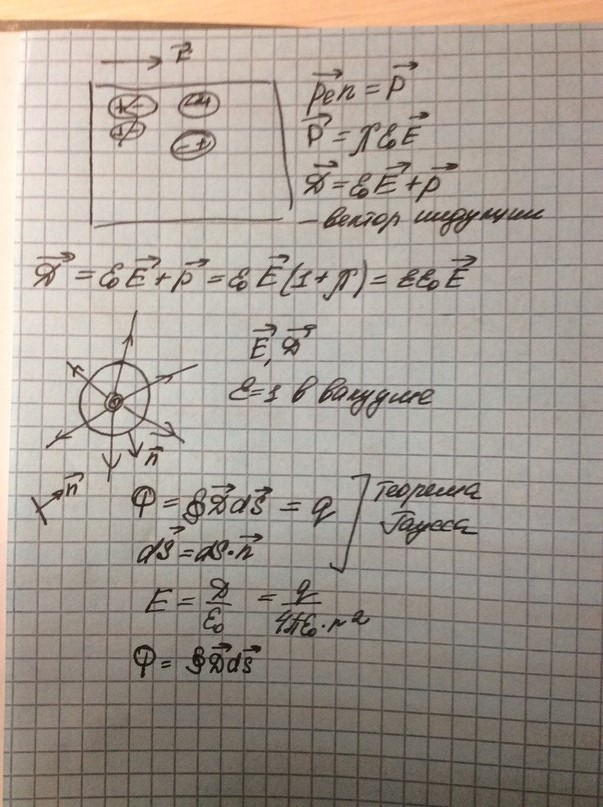 E⃗
+- -+
+- -+
p⃗еп = P⃗
P⃗ = χε₀E⃗
D⃗ = ε₀E⃗ + p⃗
– вектор индукции
D⃗ = ε₀E⃗ + p⃗ = ε₀E⃗(1+χ) = εε₀E⃗
E⃗, D⃗
ε=1 в вакууме
n⃗
n⃗
Φ = ∮D⃗dS⃗ = q
Теорема
Гаусса
dS⃗ = dS·n⃗
E = D/ε₀ = q/4πε₀·r²
Φ = ∮D⃗dS⃗